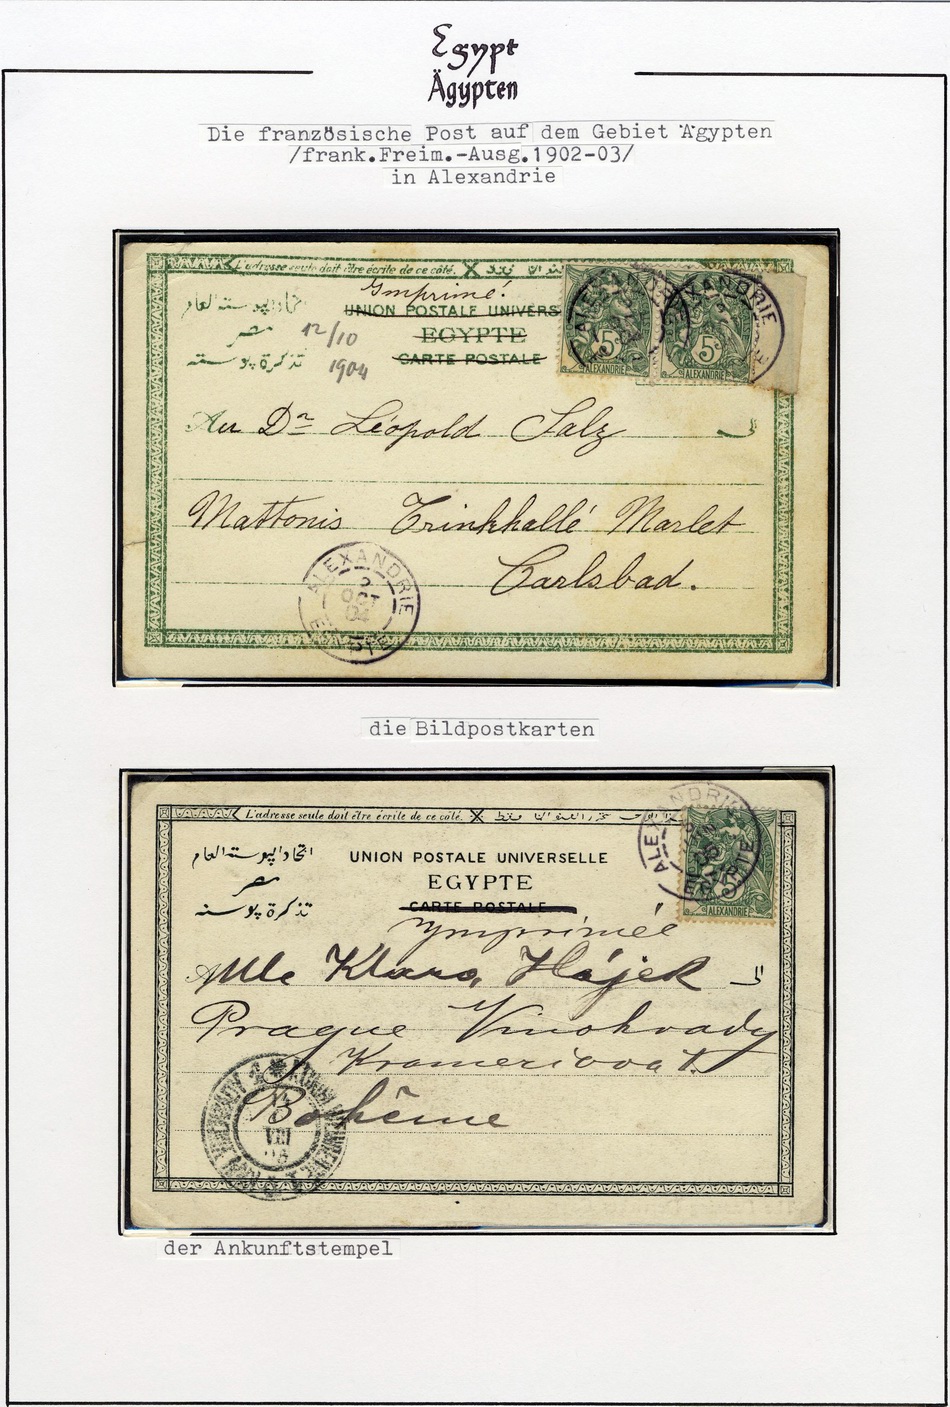 Egypt
Ägypten
Die französische Post auf dem Gebiet Ägypten
/frank.Freim.-Ausg.1902-03/
in Alexandrie
L'adresse seule doit être écrite de ce côté.
Imprimé.
اتحاد البوسته العام
UNION POSTALE UNIVERS
مصر
12/10
EGYPTE
تذكرة بوسته
1904
CARTE POSTALE
ALEXANDRIE
ALEXANDRIE
5c
5c
ALEXANDRIE
ALEXANDRIE
An Dr Léopold Salz
Mattonis Trinkhallé Marlet
Carlsbad.
ALEXANDRIE
2
OCT
04
EGYPTE
die Bildpostkarten
L'adresse seule doit être écrite de ce côté.
اتحاد البوسته العام
UNION POSTALE UNIVERSELLE
مصر
EGYPTE
تذكرة بوسته
CARTE POSTALE
ALEXANDRIE
EGYPTE
ALEXANDRIE
Ymprimée
Mlle Klara Hájek
Prague Vinohrady
Kramériova
Bohême
VIII
der Ankunftstempel